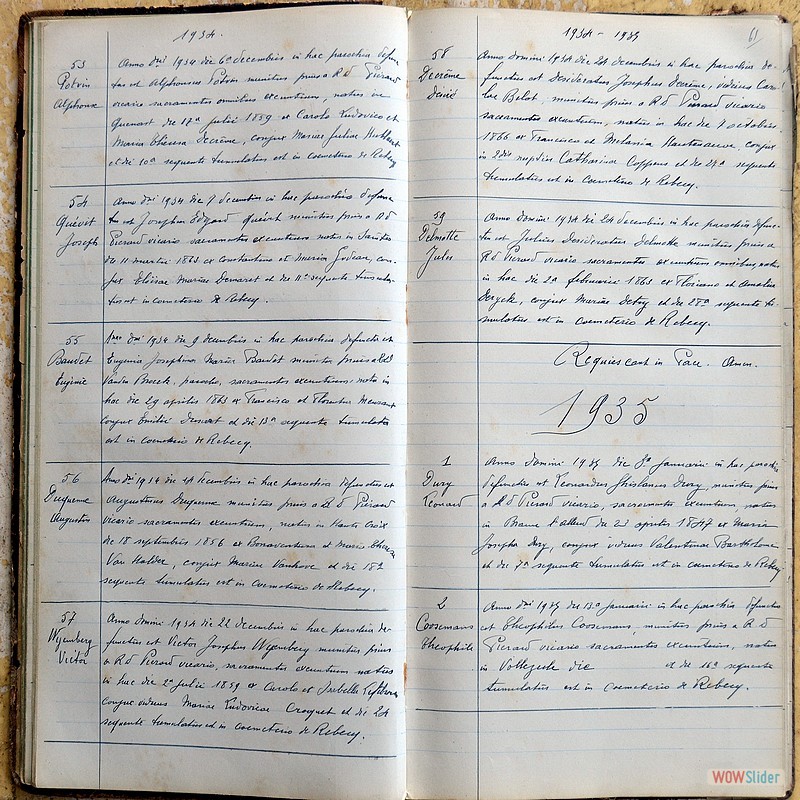 1934.
53
Potvin
Alphonse
Anno dni 1934 die 6a decembris in hac parochia defunc
tus est Alphonsus Potvin munitus prius a R d Piérard
vicario sacramentis omnibus exeuntium, natus in
Quenast die 17a julii 1859 e Carolo Ludovico et
Maria Theresa Decrême, conjux Mariae Juliae
et die 10a sequente tumulatus est in coemeterio de Rebecq
54
Quévit
Joseph
Anno dni 1934 die 7 decembris in hac parochia defunc
tus est Josephus Edgard Quévit munitus prius a R d
Pierard vicario sacramentis exeuntium natus in
die 11 martii 1863 e Constantino et Maria Godeau, con-
jux Elisae Mariae Demaret et die 11a sequente tumula-
tus est in coemeterio de Rebecq.
55
Baudet
Eugénie
Anno dni 1934 die 9 decembris in hac parochia defuncta est
Eugenia Josephina Maria Baudet munita prius a R d
Vanden Broeck, parocho, sacramentis exeuntium, nata in
hac die 29 aprilis 1863 e Francisco et Florentia
conjux Emilii et die 13a sequente tumulata
est in coemeterio de Rebecq.
56
Duquenne
Augustus
Anno dni 1934 die 14 decembris in hac parochia defunctus est
Augustinus Duquenne munitus prius a R d Piérard
vicario sacramentis exeuntium, natus in Haute Croix
die 18 septembris 1856 e Bonaventura et Maria Theresa
Van Halder, conjux Mariae Vanhove et die 18a
sequente tumulatus est in coemeterio de Rebecq.
57
Wyenberg
Victor
Anno domini 1934 die 22 decembris in hac parochia de-
functus est Victor Josephus Wyenberg munitus prius
a R d Pierard vicario, sacramentis exeuntium natus
in hac die 2a julii 1859 e Carolo et Isabella
conjux viduus Mariae Ludovicae Croquet et die 24
sequente tumulatus est in coemeterio de Rebecq.
1934 - 1935
61
58
Decrême
Désiré
Anno domini 1934 die 24 decembris in hac parochia de-
functus est Desideratus Josephus Decrême, viduus Caro-
lae Belot, munitus prius a R d Pierard vicario
sacramentis exeuntium, natus in hac die 7 octobris
1866 e Francisco et Melania Hautenauve, conjux
in 2dis nuptiis Catharina Coppens et die 27a sequente
tumulatus est in coemeterio de Rebecq.
59
Delmotte
Jules
Anno domini 1934 die 24 decembris in hac parochia defunc-
tus est Julius Desideratus Delmotte munitus prius a
R d Pierard vicario sacramentis exeuntium omnibus, natus
in hac die 2a februarii 1863 e Floriano et Amalia
Deryck, conjux Mariae Detry et die 28a sequente tu-
mulatus est in coemeterio de Rebecq.
Requiescant in Pace. Amen.
1935
1
Dury
Léonard
Anno domini 1935 die 3a januarii in hac parochia
defunctus est Leonardus Ghislanus Dury, munitus prius
a R d Pierard vicario, sacramentis exeuntium, natus
in Braine l'alleud die 23 aprilis 1847 e Maria
Josepha Dury, conjux viduus Valentinae
et die 7a sequente tumulatus est in coemeterio de Rebecq
2
Coosemans
Théophile
Anno dni 1935 die 13a januarii in hac parochia defunctus
est Theophilus Coosemans, munitus prius a R d
Pierard vicario sacramentis exeuntium, natus
in Vollezeele die et die 16a sequente
tumulatus est in coemeterio de Rebecq.
WOWSlider